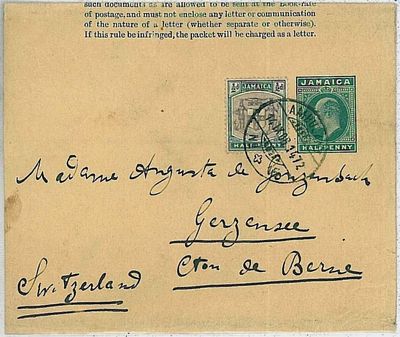 such documents as are allowed to be sent at the Book-rate
of postage, and must not enclose any letter or communication
of the nature of a letter (whether separate or otherwise).
If this rule be infringed, the packet will be charged as a letter.
JAMAICA
HALF PENNY
JAMAICA
HALFPENNY
Madame Augusta de Gonzenbach
Gerzensee
Cton de Berne
Switzerland